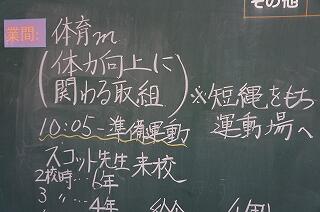 その他
業間: 体育m
(体力向上に
関わる取組)
※短縄をもち
運動場へ
10:05-準備運動
スコット先生来校
2校時…6年
3 〃…4年